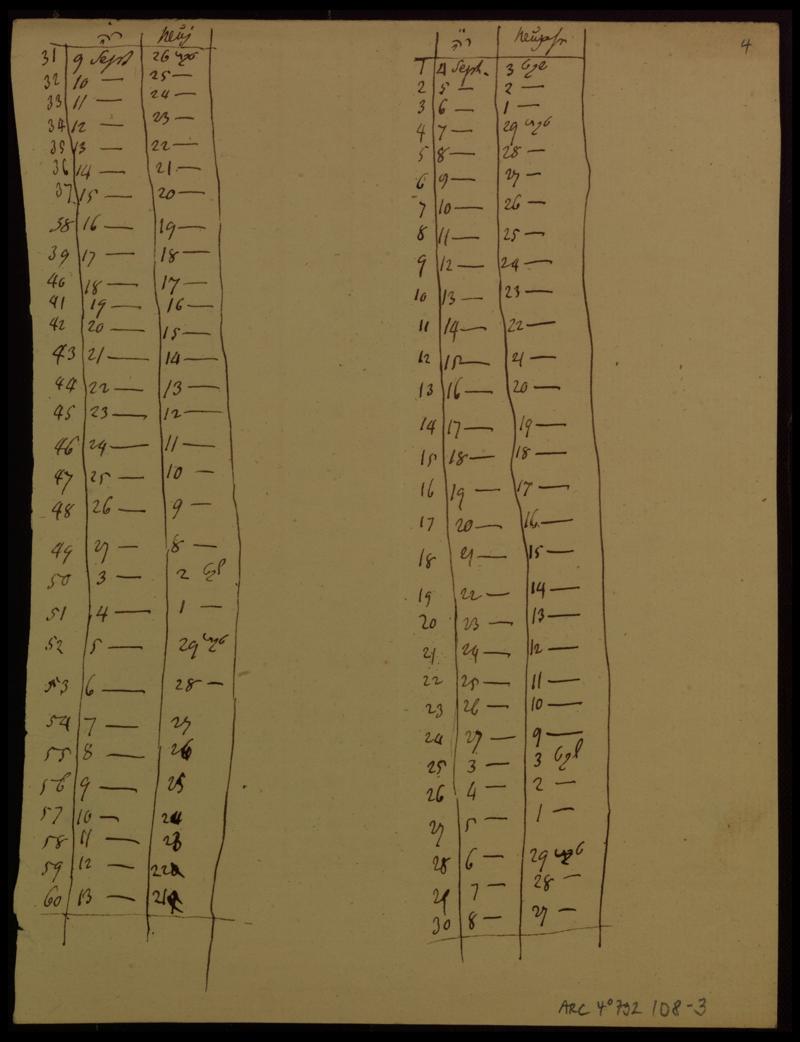 4
ר״ה
1 4 Sept. 3
2 5 — 2 —
3 6 — 1 —
4 7 — 29
5 8 — 28 —
6 9 — 27 —
7 10 — 26 —
8 11 — 25 —
9 12 — 24 —
10 13 — 23 —
11 14 — 22 —
12 15 — 21 —
13 16 — 20 —
14 17 — 19 —
15 18 — 18 —
16 19 — 17 —
17 20 — 16 —
18 21 — 15 —
19 22 — 14 —
20 23 — 13 —
21 24 — 12 —
22 25 — 11 —
23 26 — 10 —
24 27 — 9 —
25 3 — 3
26 4 — 2 —
27 5 — 1 —
28 6 — 29
29 7 — 28 —
30 8 — 27 —
ר״ה
31 9 Sept 26
32 10 — 25 —
33 11 — 24 —
34 12 — 23 —
35 13 — 22 —
36 14 — 21 —
37 15 — 20 —
38 16 — 19 —
39 17 — 18 —
40 18 — 17 —
41 19 — 16 —
42 20 — 15 —
43 21 — 14 —
44 22 — 13 —
45 23 — 12 —
46 24 — 11 —
47 25 — 10 —
48 26 — 9 —
49 27 — 8 —
50 3 — 2
51 4 — 1 —
52 5 — 29
53 6 — 28 —
54 7 — 27
55 8 — 26
56 9 — 25
57 10 — 24
58 11 — 23
59 12 — 22
60 13 — 21
ARC 4° 792 108-3